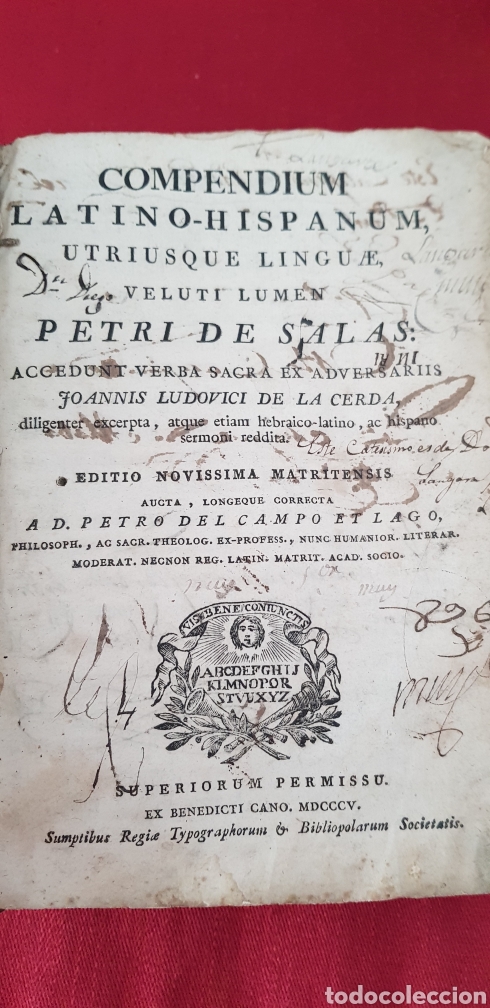 COMPENDIUM
LATINO-HISPANUM,
UTRIUSQUE LINGUÆ,
Dn Diego
VELUTI LUMEN
PETRI DE SALAS:
ACCEDUNT VERBA SACRA EX ADVERSARIIS
JOANNIS LUDOVICI DE LA CERDA,
diligenter excerpta, atque etiam hebraico-latino, ac hispano
sermoni reddita.
Este es de
EDITIO NOVISSIMA MATRITENSIS
AUCTA, LONGEQUE CORRECTA
A D. PETRO DEL CAMPO ET LAGO,
PHILOSOPH., AC SACR. THEOLOG. EX-PROFESS., NUNC HUMANIOR. LITERAR.
MODERAT. NECNON REG. LATIN. MATRIT. ACAD. SOCIO.
muy
VIS BENE CONIUNCTIS
ABCDEFGHIJ
KLMNOPQR
STVUXYZ
896
SUPERIORUM PERMISSU.
EX BENEDICTI CANO. MDCCCV.
Sumptibus Regiæ Typographorum & Bibliopolarum Societatis.
todocoleccion